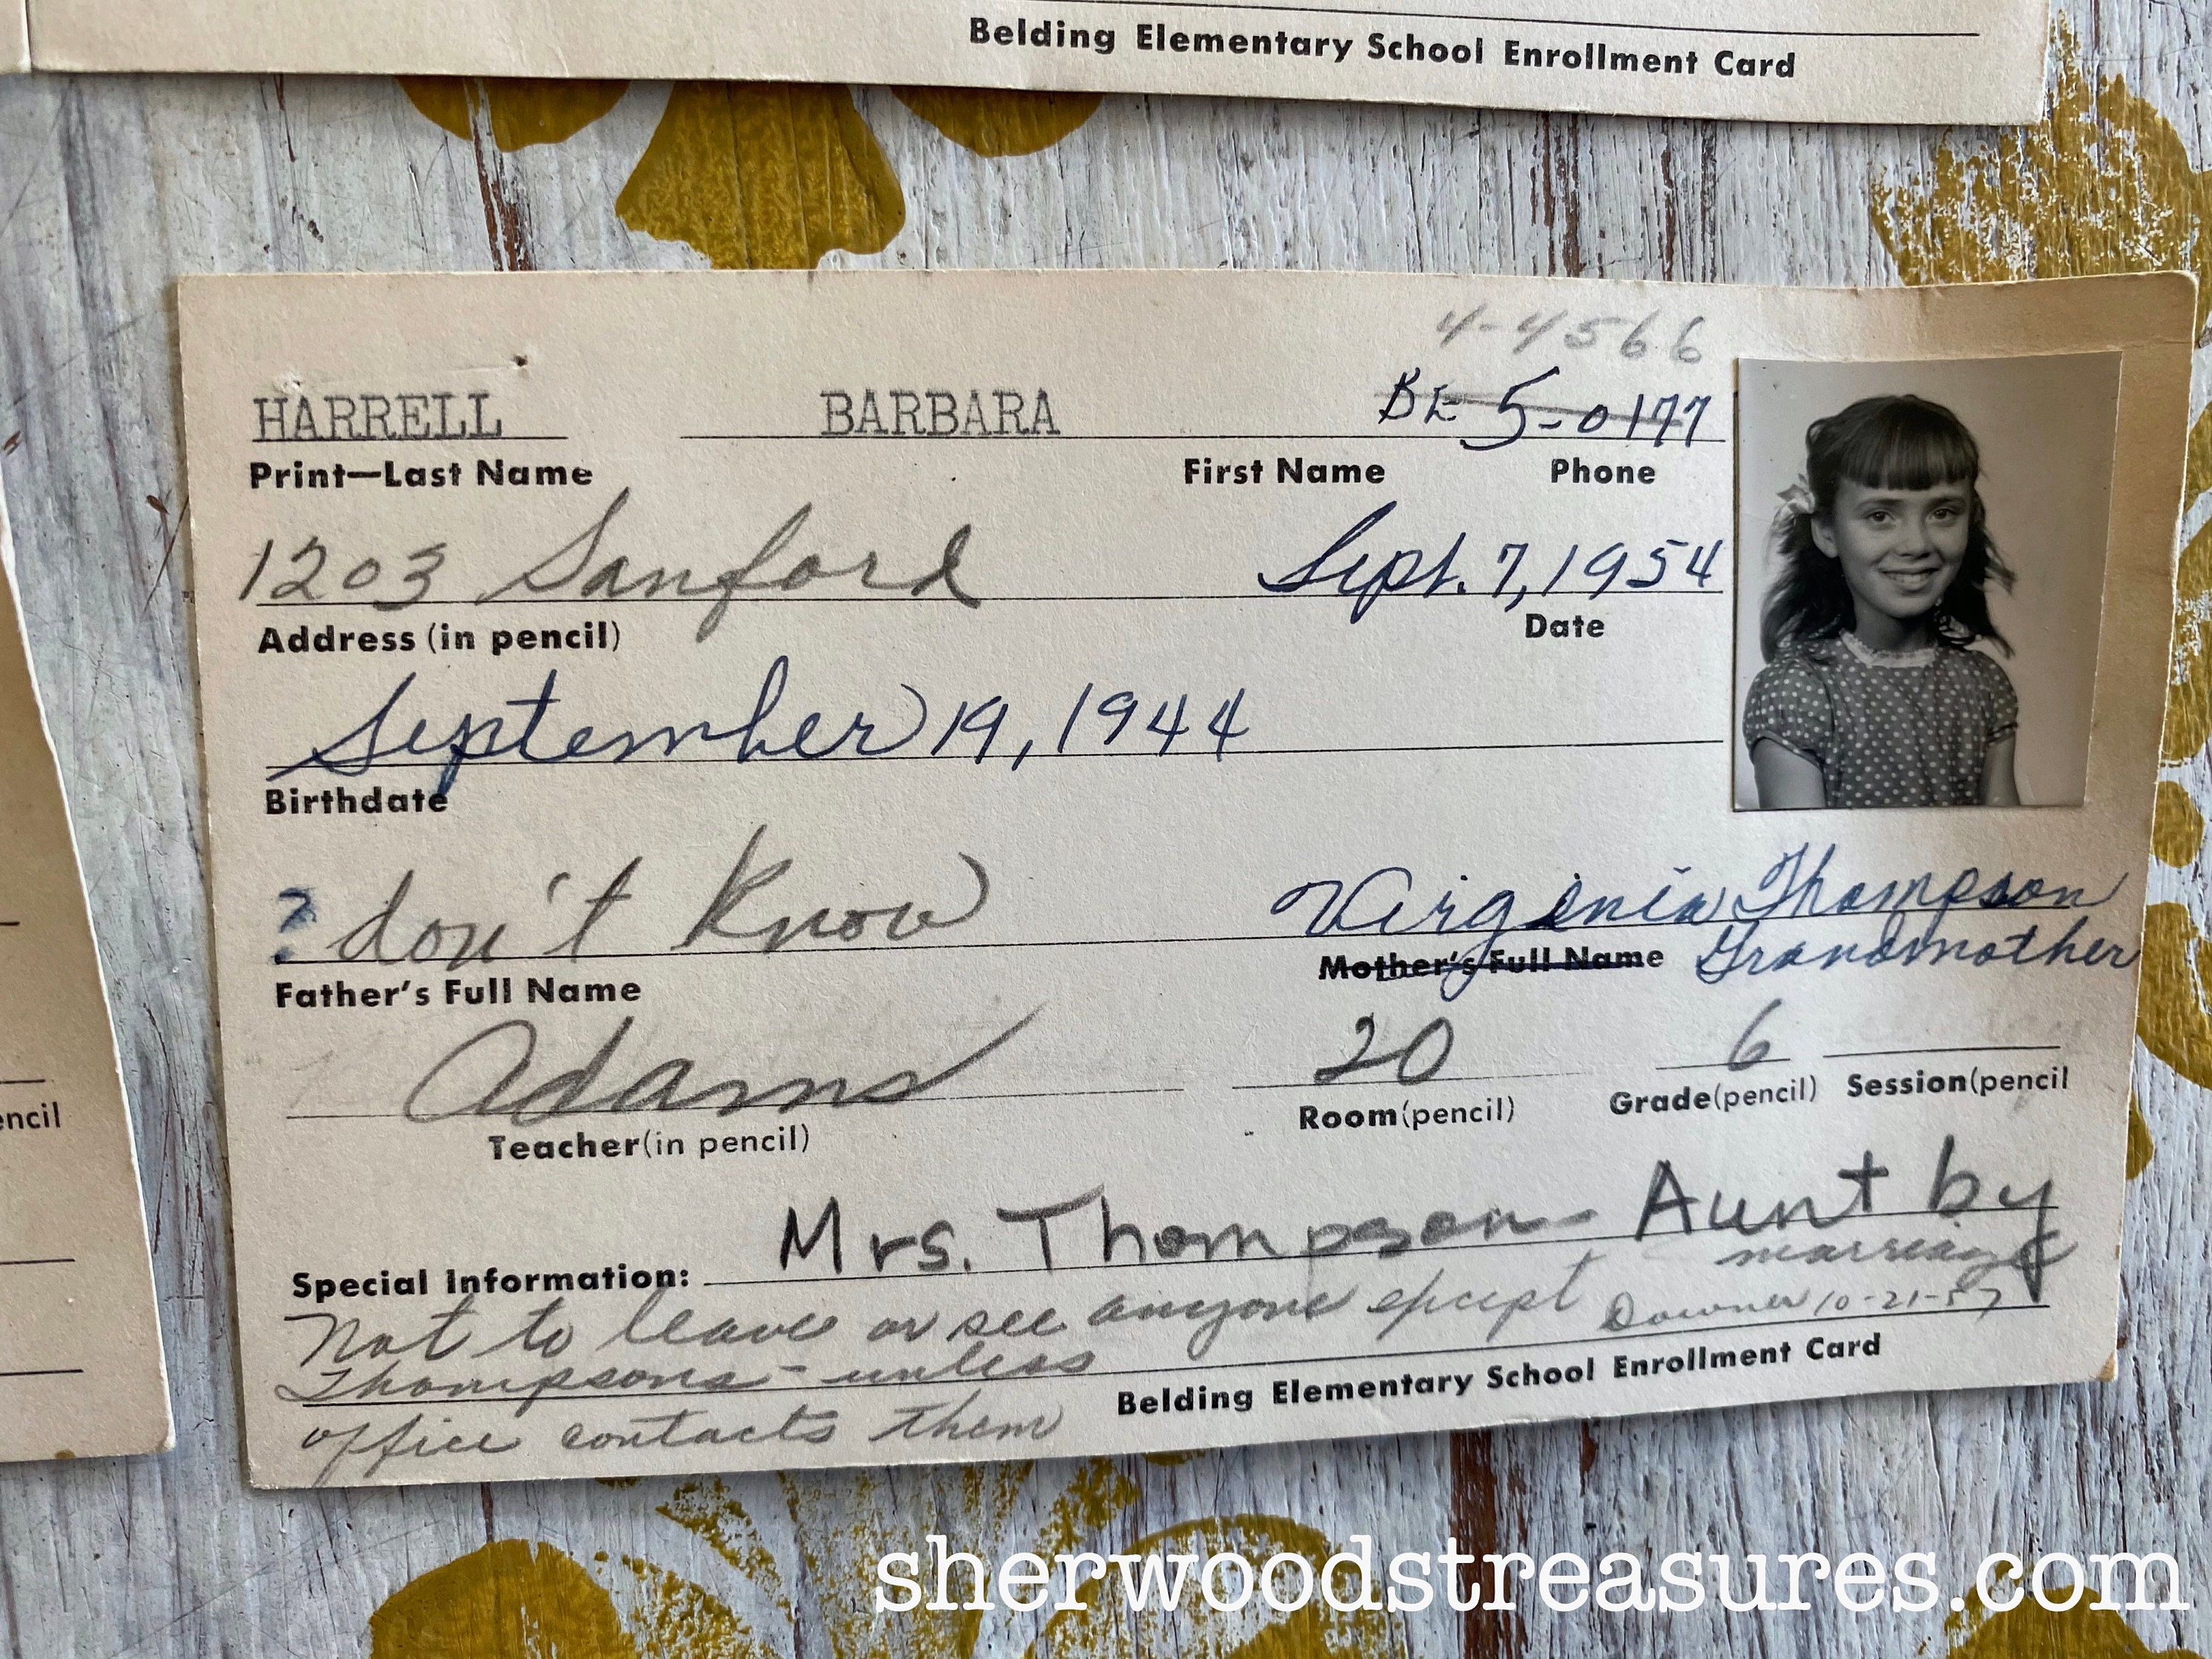 Belding Elementary School Enrollment Card
4-4566
HARRELL BARBARA BE 5-0177
Print—Last Name First Name Phone
1203 Sanford Sept. 7, 1954
Address (in pencil) Date
September 19, 1944
Birthdate
? don't Know Virginia Thompson
Father's Full Name Mother's Full Name Grandmother
Adams 20 6
Teacher(in pencil) Room(pencil) Grade(pencil) Session(pencil
Special Information: Mrs. Thompson - Aunt by
marriage
Not to leave or see anyone except Downer 10-21-57
Thompsons - unless
office contacts them
Belding Elementary School Enrollment Card
encil
sherwoodstreasures.com